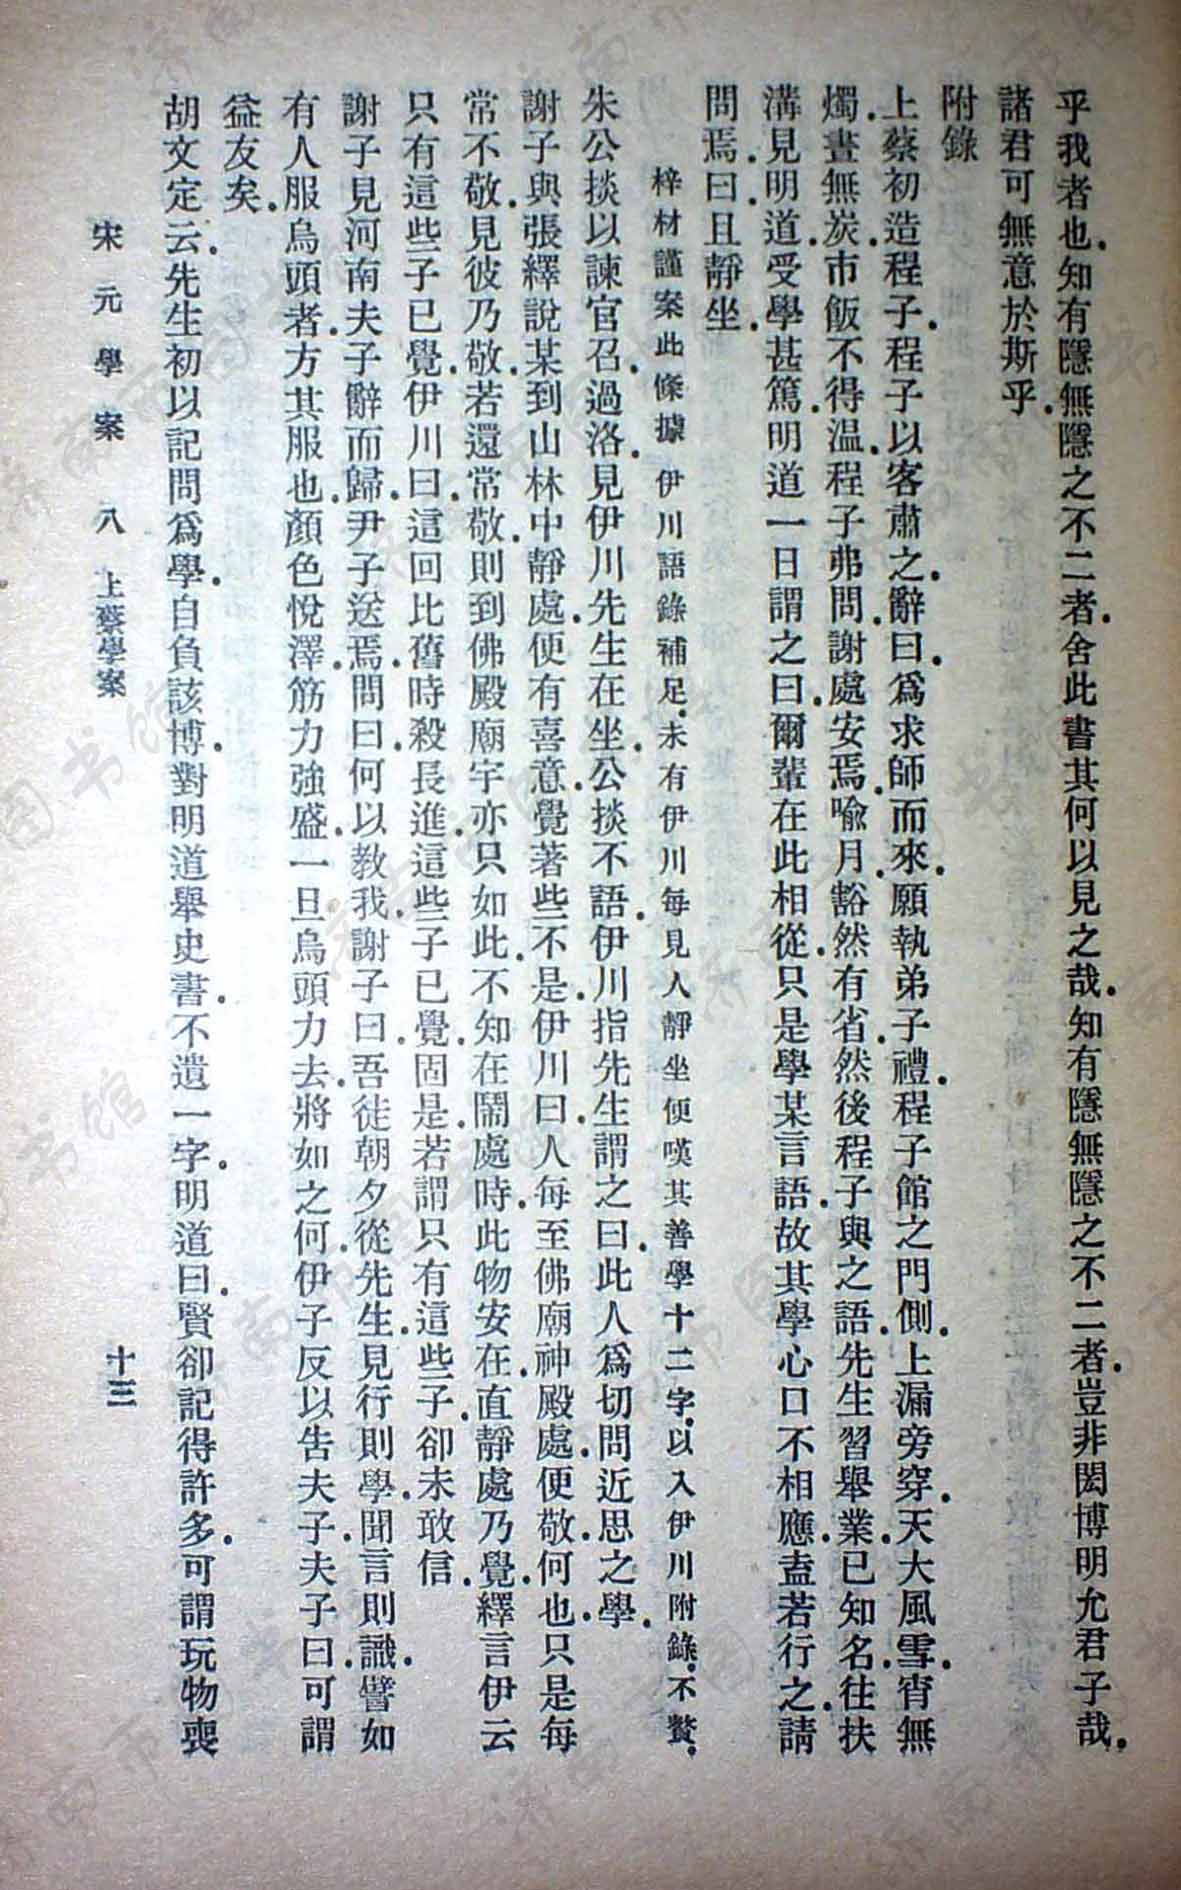 乎我者也.知有隱無隱之不二者.舍此書其何以見之哉.知有隱無隱之不二者.豈非閎博明允君子哉.
諸君可無意於斯乎.
附錄
上蔡初造程子.程子以客肅之.辭曰.爲求師而來.願執弟子禮.程子館之門側.上漏旁穿.天大風雪.宵無
燭.晝無炭.市飯不得温.程子弗問.謝處安焉.喩月.豁然有省.然後程子與之語.先生習舉業.已知名.往扶
溝見明道.受學甚篤.明道一日謂之曰.爾輩在此相從.只是學某言語.故其學心口不相應.盍若行之.請
問焉.曰且靜坐.
梓材謹案此條據伊川語錄補足.末有伊川每見人靜坐便嘆其善學十二字.以入伊川附錄.不贅.
朱公掞以諫官召.過洛.見伊川先生在坐.公掞不語.伊川指先生謂之曰.此人爲切問近思之學.
謝子與張繹說.某到山林中靜處.便有喜意.覺著些不是.伊川曰.人每至佛廟神殿處便敬.何也.只是每
常不敬.見彼乃敬.若還常敬.則到佛殿廟宇.亦只如此.不知在鬧處時.此物安在.直靜處乃覺.繹言伊云
只有這些子已覺.伊川曰.這回比舊時殺長進.這些子已覺.固是.若謂只有這些子.卻未敢信.
謝子見河南夫子.辭而歸.尹子送焉.問曰.何以教我.謝子曰.吾徒朝夕從先生.見行則學.聞言則識.譬如
有人服烏頭者.方其服也.顏色悅澤.筋力強盛.一旦烏頭力去.將如之何.伊子反以告夫子.夫子曰.可謂
益友矣.
胡文定云.先生初以記問爲學.自負該博.對明道舉史書.不遺一字.明道曰.賢卻記得許多.可謂玩物喪
宋元學案 八 上蔡學案 十三